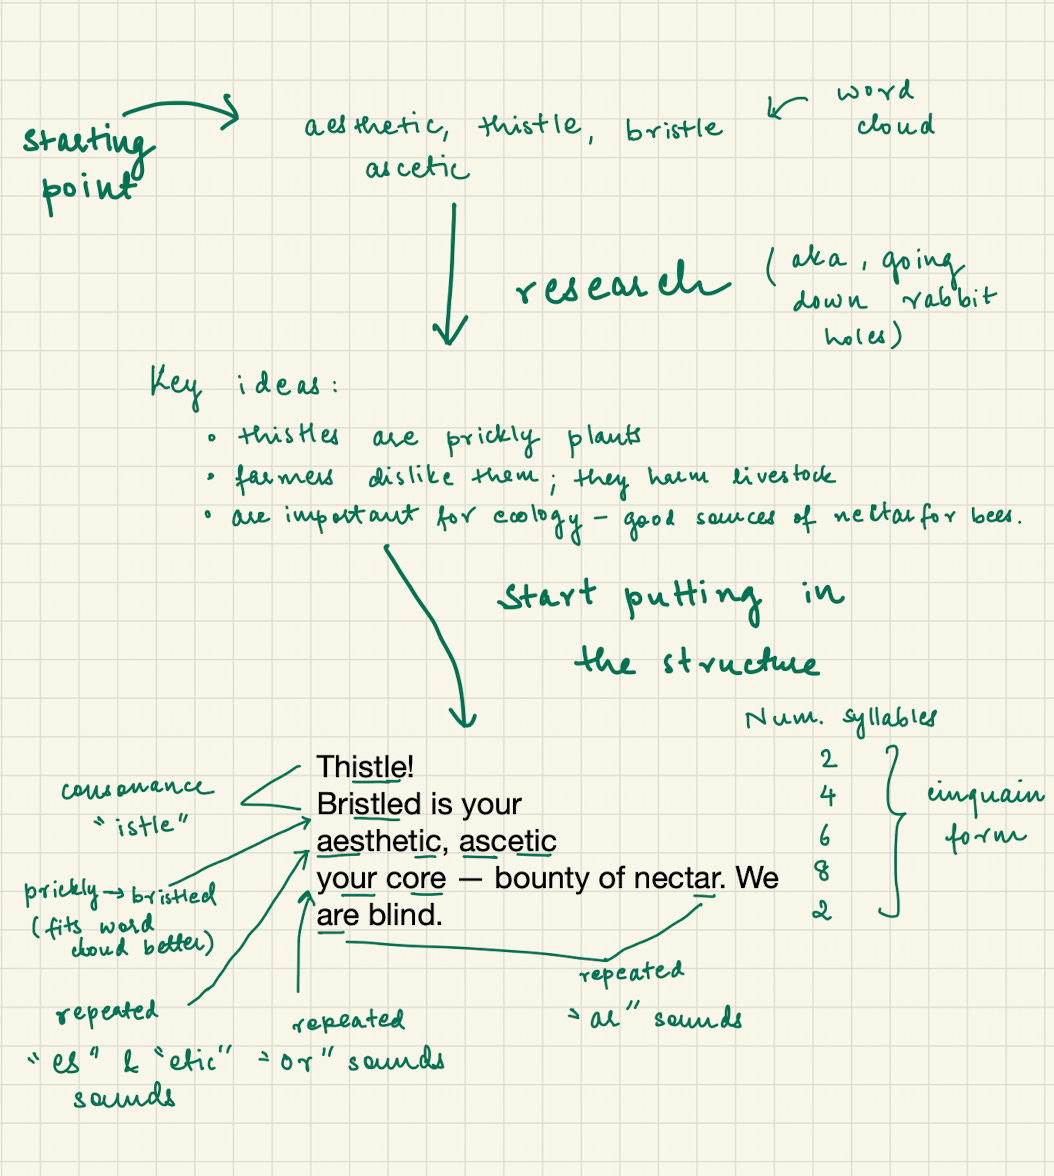 starting
point
aesthetic, thistle, bristle
ascetic
word
cloud
research
(aka, going
down rabbit
holes)
Key ideas:
• thistles are prickly plants
• farmers dislike them; they harm livestock
• are important for ecology – good sources of nectar for bees.
Start putting in
the structure
Num. syllables
2
4
6
8
2
cinquain
form
Thistle!
Bristled is your
aesthetic, ascetic
your core — bounty of nectar. We
are blind.
consonance
"istle"
prickly → bristled
(fits word
cloud better)
repeated
"es" & "etic"
sounds
repeated
"or" sounds
repeated
"ar" sounds